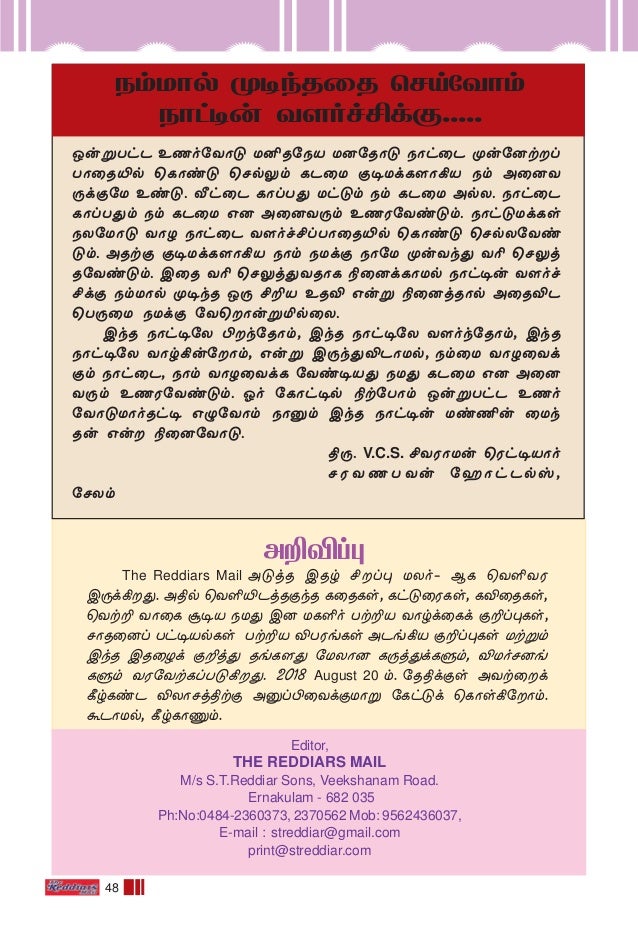 நம்மால் முடிந்ததை செய்வோம்
நாட்டின் வளர்ச்சிக்கு.....
ஒன்றுபட்ட உணர்வோடு மனிதநேய மனதோடு நாட்டை முன்னேற்றப்
பாதையில் கொண்டு செல்லும் கடமை குடிமக்களாகிய நம் அனைவ
ருக்குமே உண்டு. வீட்டை காப்பது மட்டும் நம் கடமை அல்ல. நாட்டை
காப்பதும் நம் கடமை என அனைவரும் உணரவேண்டும். நாட்டுமக்கள்
நலமோடு வாழ நாட்டை வளர்ச்சிப்பாதையில் கொண்டு செல்லவேண்
டும். அதற்கு குடிமக்களாகிய நாம் நமக்கு நாமே முன்வந்து வரி செலுத்
தவேண்டும். இதை வரி செலுத்துவதாக நினைக்காமல் நாட்டின் வளர்ச்
சிக்கு நம்மால் முடிந்த ஒரு சிறிய உதவி என்று நினைத்தால் அதைவிட
பெருமை நமக்கு வேறொன்றுமில்லை.
இந்த நாட்டிலே பிறந்தோம், இந்த நாட்டிலே வளர்ந்தோம், இந்த
நாட்டிலே வாழ்கின்றோம், என்று இருந்துவிடாமல், நம்மை வாழவைக்
கும் நாட்டை, நாம் வாழவைக்க வேண்டியது நமது கடமை என அனை
வரும் உணரவேண்டும். ஓர் கோட்டில் நிற்போம் ஒன்றுபட்ட உணர்
வோடுமார்தட்டி எழுவோம் நானும் இந்த நாட்டின் மண்ணின் மைந்
தன் என்ற நினைவோடு.
திரு. V.C.S. சிவராமன் ரெட்டியார்
சரவணபவன் ஹோட்டல்ஸ்,
சேலம்
அறிவிப்பு
The Reddiars Mail அடுத்த இதழ் சிறப்பு மலர்- ஆக வெளிவர
இருக்கிறது. அதில் வெளியிடத்தகுந்த கதைகள், கட்டுரைகள், கவிதைகள்,
வெற்றி வாகை சூடிய நமது இன மகளிர் பற்றிய வாழ்க்கைக் குறிப்புகள்,
சாதனைப் பட்டியல்கள் பற்றிய விபரங்கள் அடங்கிய குறிப்புகள் மற்றும்
இந்த இதழைக் குறித்து தங்களது மேலான கருத்துக்களும், விமர்சனங்
களும் வரவேற்கப்படுகிறது. 2018 August 20 ம். தேதிக்குள் அவற்றைக்
கீழ்கண்ட விலாசத்திற்கு அனுப்பிவைக்குமாறு கேட்டுக் கொள்கிறோம்.
கூடாமல், கீழ்காணும்.
Editor,
THE REDDIARS MAIL
M/s S.T.Reddiar Sons, Veekshanam Road.
Ernakulam - 682 035
Ph:No:0484-2360373, 2370562 Mob: 9562436037,
E-mail : streddiar@gmail.com
print@streddiar.com
The Reddiars Mail 48